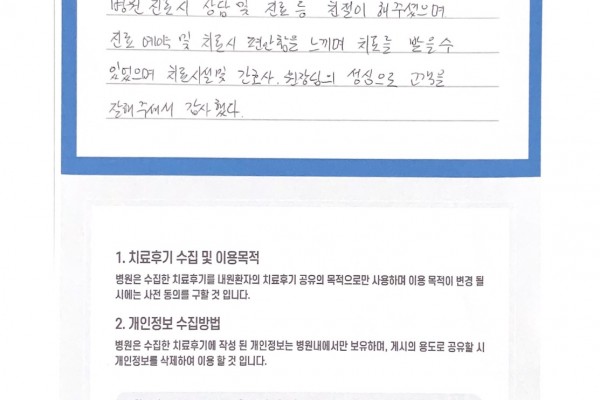 병원 진료시 상담 및 진료 등 친절이 해주셨으며
진료 예약 및 치료시 편안함을 느끼며 치료를 받을수
있었으며 치료시설및 간호사, 원장님의 성심으로 고객을
잘해주셔서 감사했다.
1. 치료후기 수집 및 이용목적
병원은 수집한 치료후기를 내원환자의 치료후기 공유의 목적으로만 사용하며 이용 목적이 변경 될
시에는 사전 동의를 구할 것 입니다.
2. 개인정보 수집방법
병원은 수집한 치료후기에 작성 된 개인정보는 병원내에서만 보유하며, 게시의 용도로 공유할 시
개인정보를 삭제하여 이용 할 것 입니다.